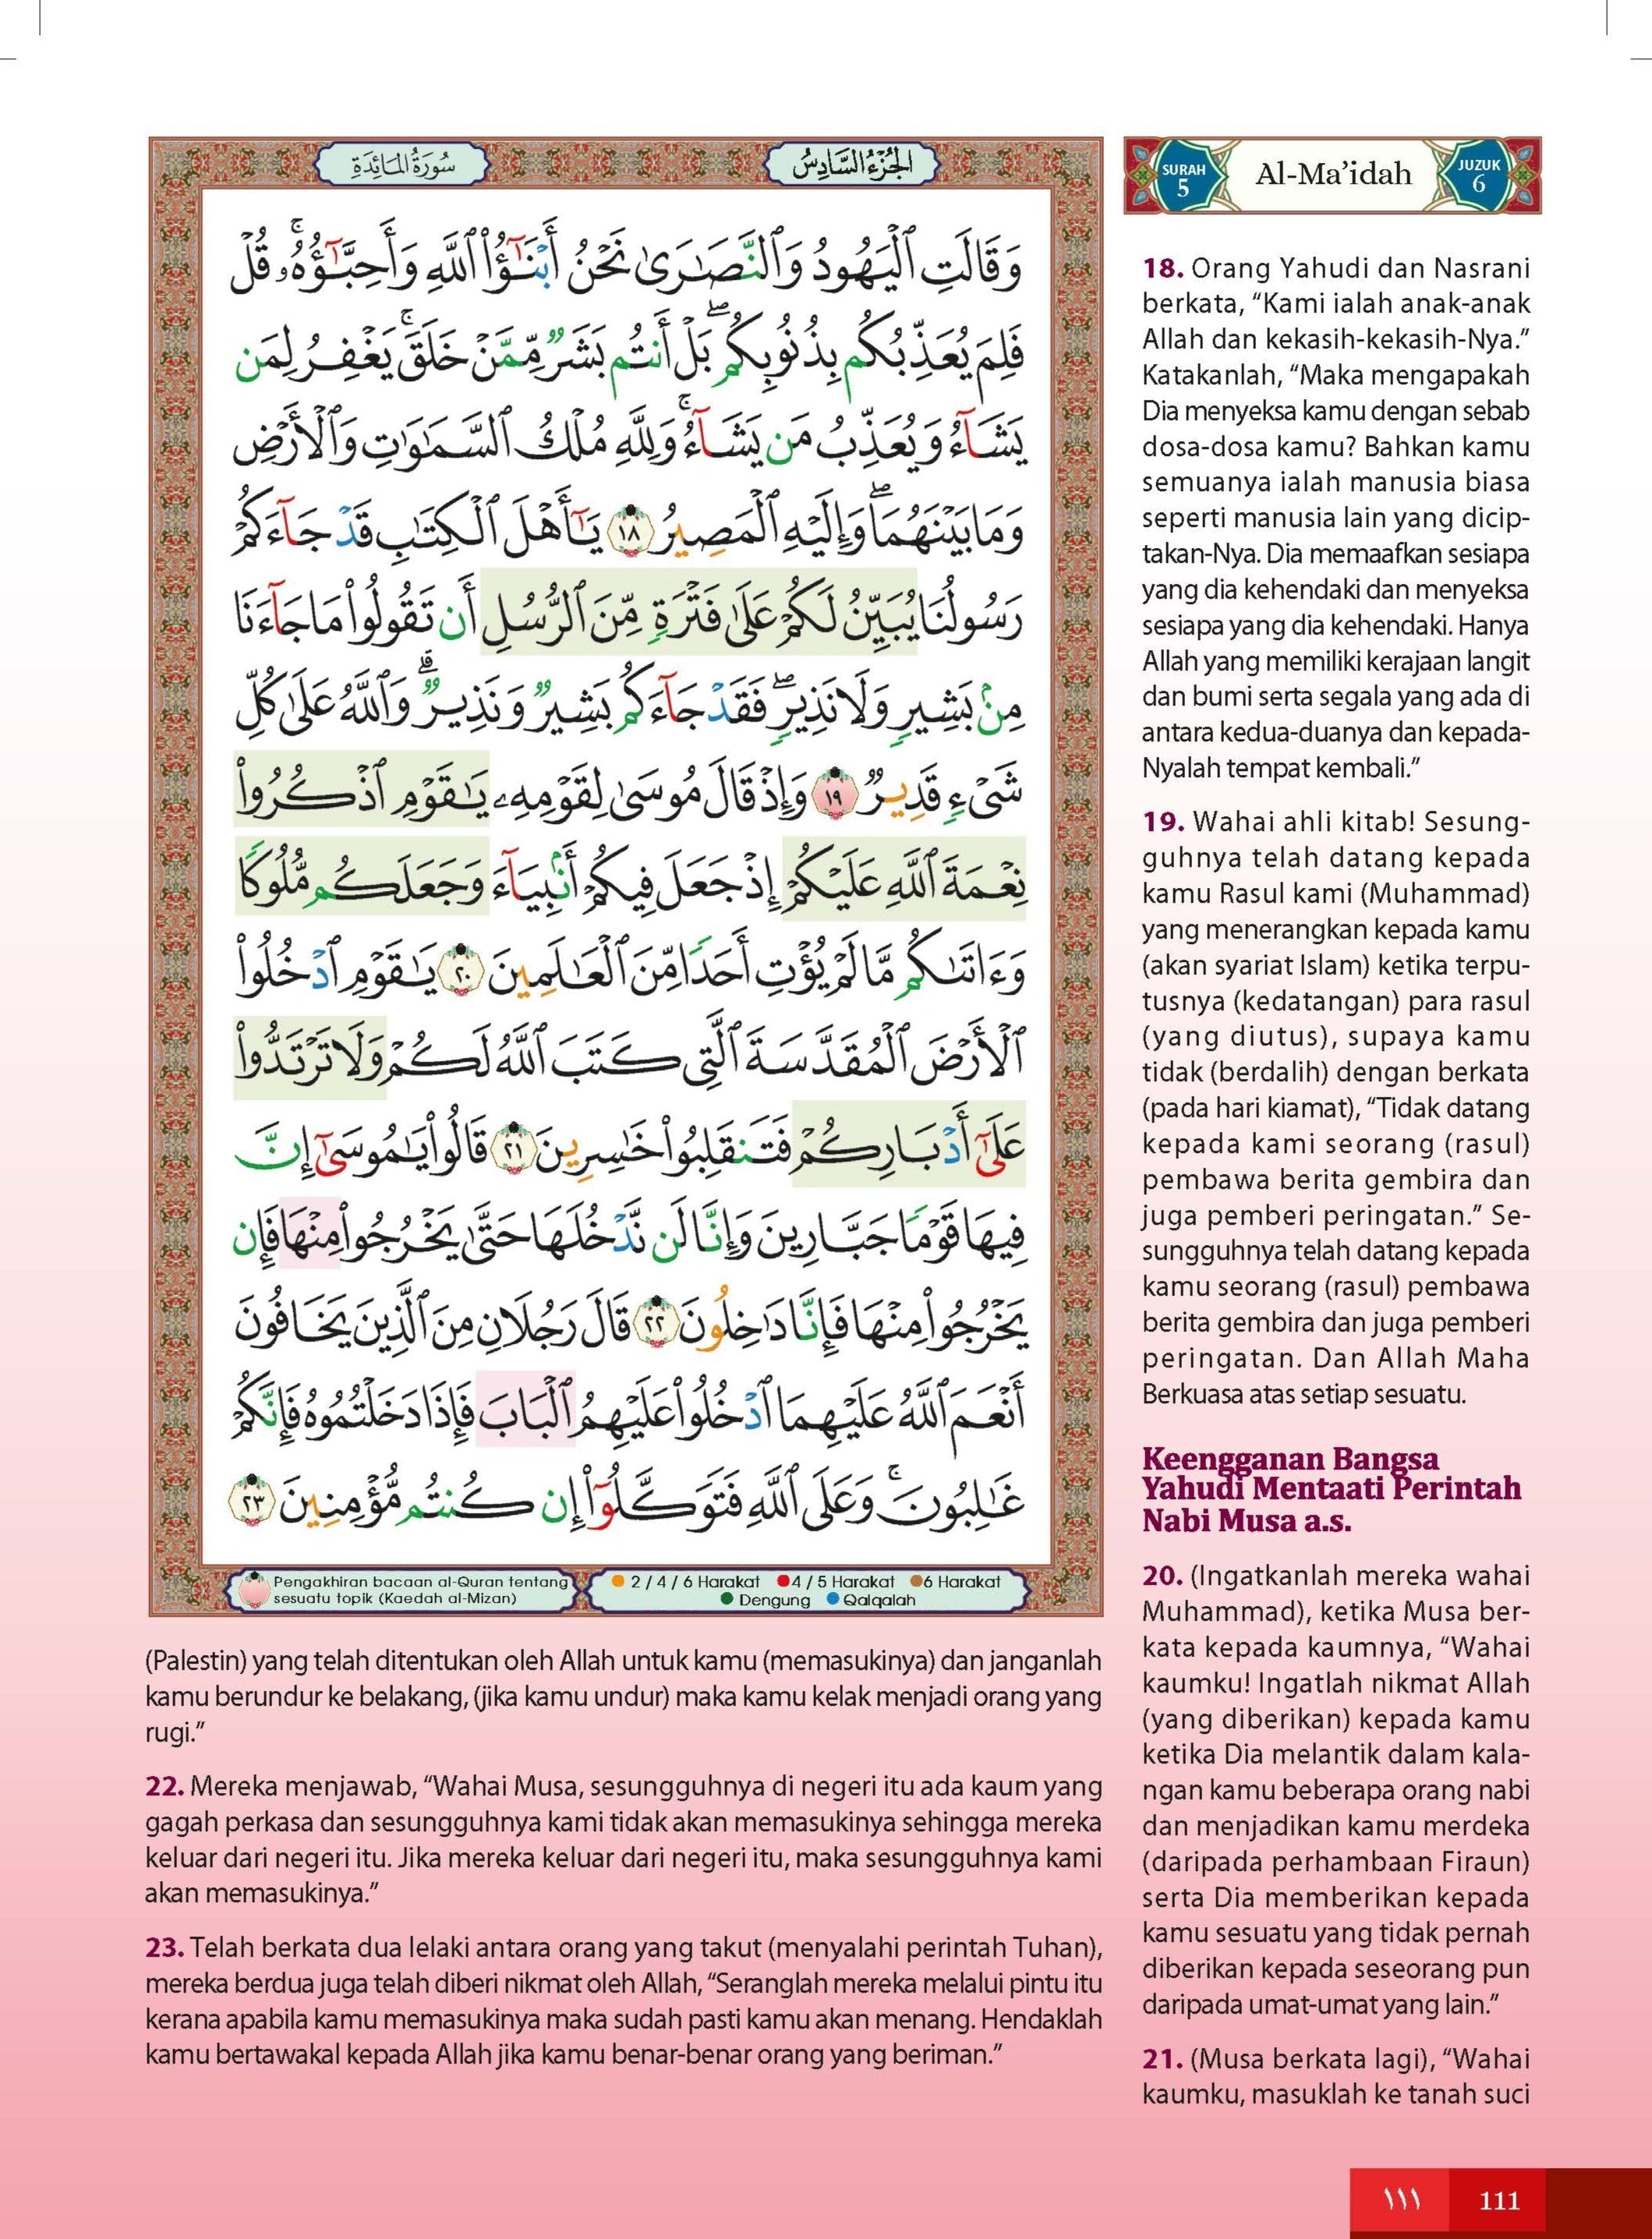 سُورَةُ المَائِدَةِ
الجُزْءُ السَّادِسُ
SURAH
5
Al-Ma’idah
JUZUK
6
وَقَالَتِ ٱلْيَهُودُ وَٱلنَّصَٰرَىٰ نَحْنُ أَبْنَٰٓؤُا۟ ٱللَّهِ وَأَحِبَّٰٓؤُهُۥ ۚ قُلْ
فَلِمَ يُعَذِّبُكُم بِذُنُوبِكُم ۖ بَلْ أَنتُم بَشَرٌ مِّمَّنْ خَلَقَ ۚ يَغْفِرُ لِمَن
يَشَآءُ وَيُعَذِّبُ مَن يَشَآءُ ۚ وَلِلَّهِ مُلْكُ ٱلسَّمَٰوَٰتِ وَٱلْأَرْضِ
وَمَا بَيْنَهُمَا ۖ وَإِلَيْهِ ٱلْمَصِيرُ ١٨ يَٰٓأَهْلَ ٱلْكِتَٰبِ قَدْ جَآءَكُمْ
رَسُولُنَا يُبَيِّنُ لَكُمْ عَلَىٰ فَتْرَةٍ مِّنَ ٱلرُّسُلِ أَن تَقُولُوا۟ مَا جَآءَنَا
مِنۢ بَشِيرٍ وَلَا نَذِيرٍ ۖ فَقَدْ جَآءَكُم بَشِيرٌ وَنَذِيرٌ ۗ وَٱللَّهُ عَلَىٰ كُلِّ
شَىْءٍ قَدِيرٌ ١٩ وَإِذْ قَالَ مُوسَىٰ لِقَوْمِهِۦ يَٰقَوْمِ ٱذْكُرُوا۟
نِعْمَةَ ٱللَّهِ عَلَيْكُمْ إِذْ جَعَلَ فِيكُمْ أَنۢبِيَآءَ وَجَعَلَكُم مُّلُوكًا
وَءَاتَىٰكُم مَّا لَمْ يُؤْتِ أَحَدًا مِّنَ ٱلْعَٰلَمِينَ ٢٠ يَٰقَوْمِ ٱدْخُلُوا۟
ٱلْأَرْضَ ٱلْمُقَدَّسَةَ ٱلَّتِى كَتَبَ ٱللَّهُ لَكُمْ وَلَا تَرْتَدُّوا۟
عَلَىٰٓ أَدْبَارِكُمْ فَتَنقَلِبُوا۟ خَٰسِرِينَ ٢١ قَالُوا۟ يَٰمُوسَىٰٓ إِنَّ
فِيهَا قَوْمًا جَبَّارِينَ وَإِنَّا لَن نَّدْخُلَهَا حَتَّىٰ يَخْرُجُوا۟ مِنْهَا فَإِن
يَخْرُجُوا۟ مِنْهَا فَإِنَّا دَٰخِلُونَ ٢٢ قَالَ رَجُلَانِ مِنَ ٱلَّذِينَ يَخَافُونَ
أَنْعَمَ ٱللَّهُ عَلَيْهِمَا ٱدْخُلُوا۟ عَلَيْهِمُ ٱلْبَابَ فَإِذَا دَخَلْتُمُوهُ فَإِنَّكُمْ
غَٰلِبُونَ ۚ وَعَلَى ٱللَّهِ فَتَوَكَّلُوٓا۟ إِن كُنتُم مُّؤْمِنِينَ ٢٣
Pengakhiran bacaan al-Quran tentang
sesuatu topik (Kaedah al-Mizan)
2 / 4 / 6 Harakat 4 / 5 Harakat 6 Harakat
Dengung Qalqalah
18. Orang Yahudi dan Nasrani
berkata, “Kami ialah anak-anak
Allah dan kekasih-kekasih-Nya.”
Katakanlah, “Maka mengapakah
Dia menyeksa kamu dengan sebab
dosa-dosa kamu? Bahkan kamu
semuanya ialah manusia biasa
seperti manusia lain yang dicip-
takan-Nya. Dia memaafkan sesiapa
yang dia kehendaki dan menyeksa
sesiapa yang dia kehendaki. Hanya
Allah yang memiliki kerajaan langit
dan bumi serta segala yang ada di
antara kedua-duanya dan kepada-
Nyalah tempat kembali.”
19. Wahai ahli kitab! Sesung-
guhnya telah datang kepada
kamu Rasul kami (Muhammad)
yang menerangkan kepada kamu
(akan syariat Islam) ketika terpu-
tusnya (kedatangan) para rasul
(yang diutus), supaya kamu
tidak (berdalih) dengan berkata
(pada hari kiamat), “Tidak datang
kepada kami seorang (rasul)
pembawa berita gembira dan
juga pemberi peringatan.” Se-
sungguhnya telah datang kepada
kamu seorang (rasul) pembawa
berita gembira dan juga pemberi
peringatan. Dan Allah Maha
Berkuasa atas setiap sesuatu.
Keengganan Bangsa
Yahudi Mentaati Perintah
Nabi Musa a.s.
20. (Ingatkanlah mereka wahai
Muhammad), ketika Musa ber-
kata kepada kaumnya, “Wahai
kaumku! Ingatlah nikmat Allah
(yang diberikan) kepada kamu
ketika Dia melantik dalam kala-
ngan kamu beberapa orang nabi
dan menjadikan kamu merdeka
(daripada perhambaan Firaun)
serta Dia memberikan kepada
kamu sesuatu yang tidak pernah
diberikan kepada seseorang pun
daripada umat-umat yang lain.”
21. (Musa berkata lagi), “Wahai
kaumku, masuklah ke tanah suci
(Palestin) yang telah ditentukan oleh Allah untuk kamu (memasukinya) dan janganlah
kamu berundur ke belakang, (jika kamu undur) maka kamu kelak menjadi orang yang
rugi.”
22. Mereka menjawab, “Wahai Musa, sesungguhnya di negeri itu ada kaum yang
gagah perkasa dan sesungguhnya kami tidak akan memasukinya sehingga mereka
keluar dari negeri itu. Jika mereka keluar dari negeri itu, maka sesungguhnya kami
akan memasukinya.”
23. Telah berkata dua lelaki antara orang yang takut (menyalahi perintah Tuhan),
mereka berdua juga telah diberi nikmat oleh Allah, “Seranglah mereka melalui pintu itu
kerana apabila kamu memasukinya maka sudah pasti kamu akan menang. Hendaklah
kamu bertawakal kepada Allah jika kamu benar-benar orang yang beriman.”
١١١ 111